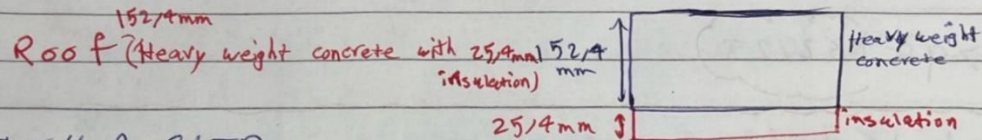 152,4mm
Roof (Heavy weight concrete with 25,4mm insulation)
152,4 mm
Heavy weight concrete
25,4mm
insulation